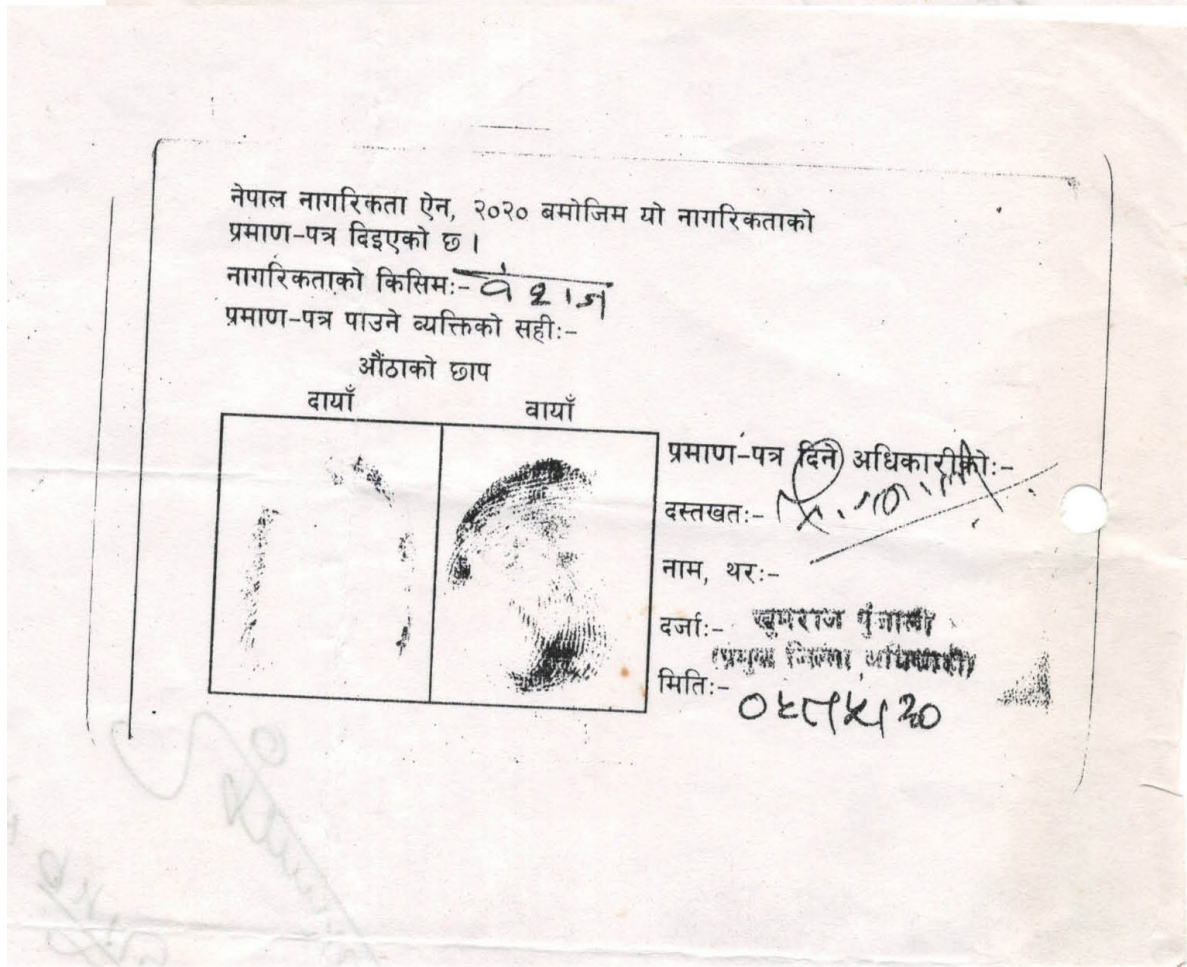 नेपाल नागरिकता ऐन, २०२० बमोजिम यो नागरिकताको
प्रमाण-पत्र दिइएको छ ।
नागरिकताको किसिमः- वंशज
प्रमाण-पत्र पाउने व्यक्तिको सहीः-
औंठाको छाप
दायाँ वायाँ
प्रमाण-पत्र दिने अधिकारीकोः-
दस्तखतः-
नाम, थरः-
दर्जाः- खुमराज पुंजाली
प्रमुख जिल्ला अधिकारी
मितिः-